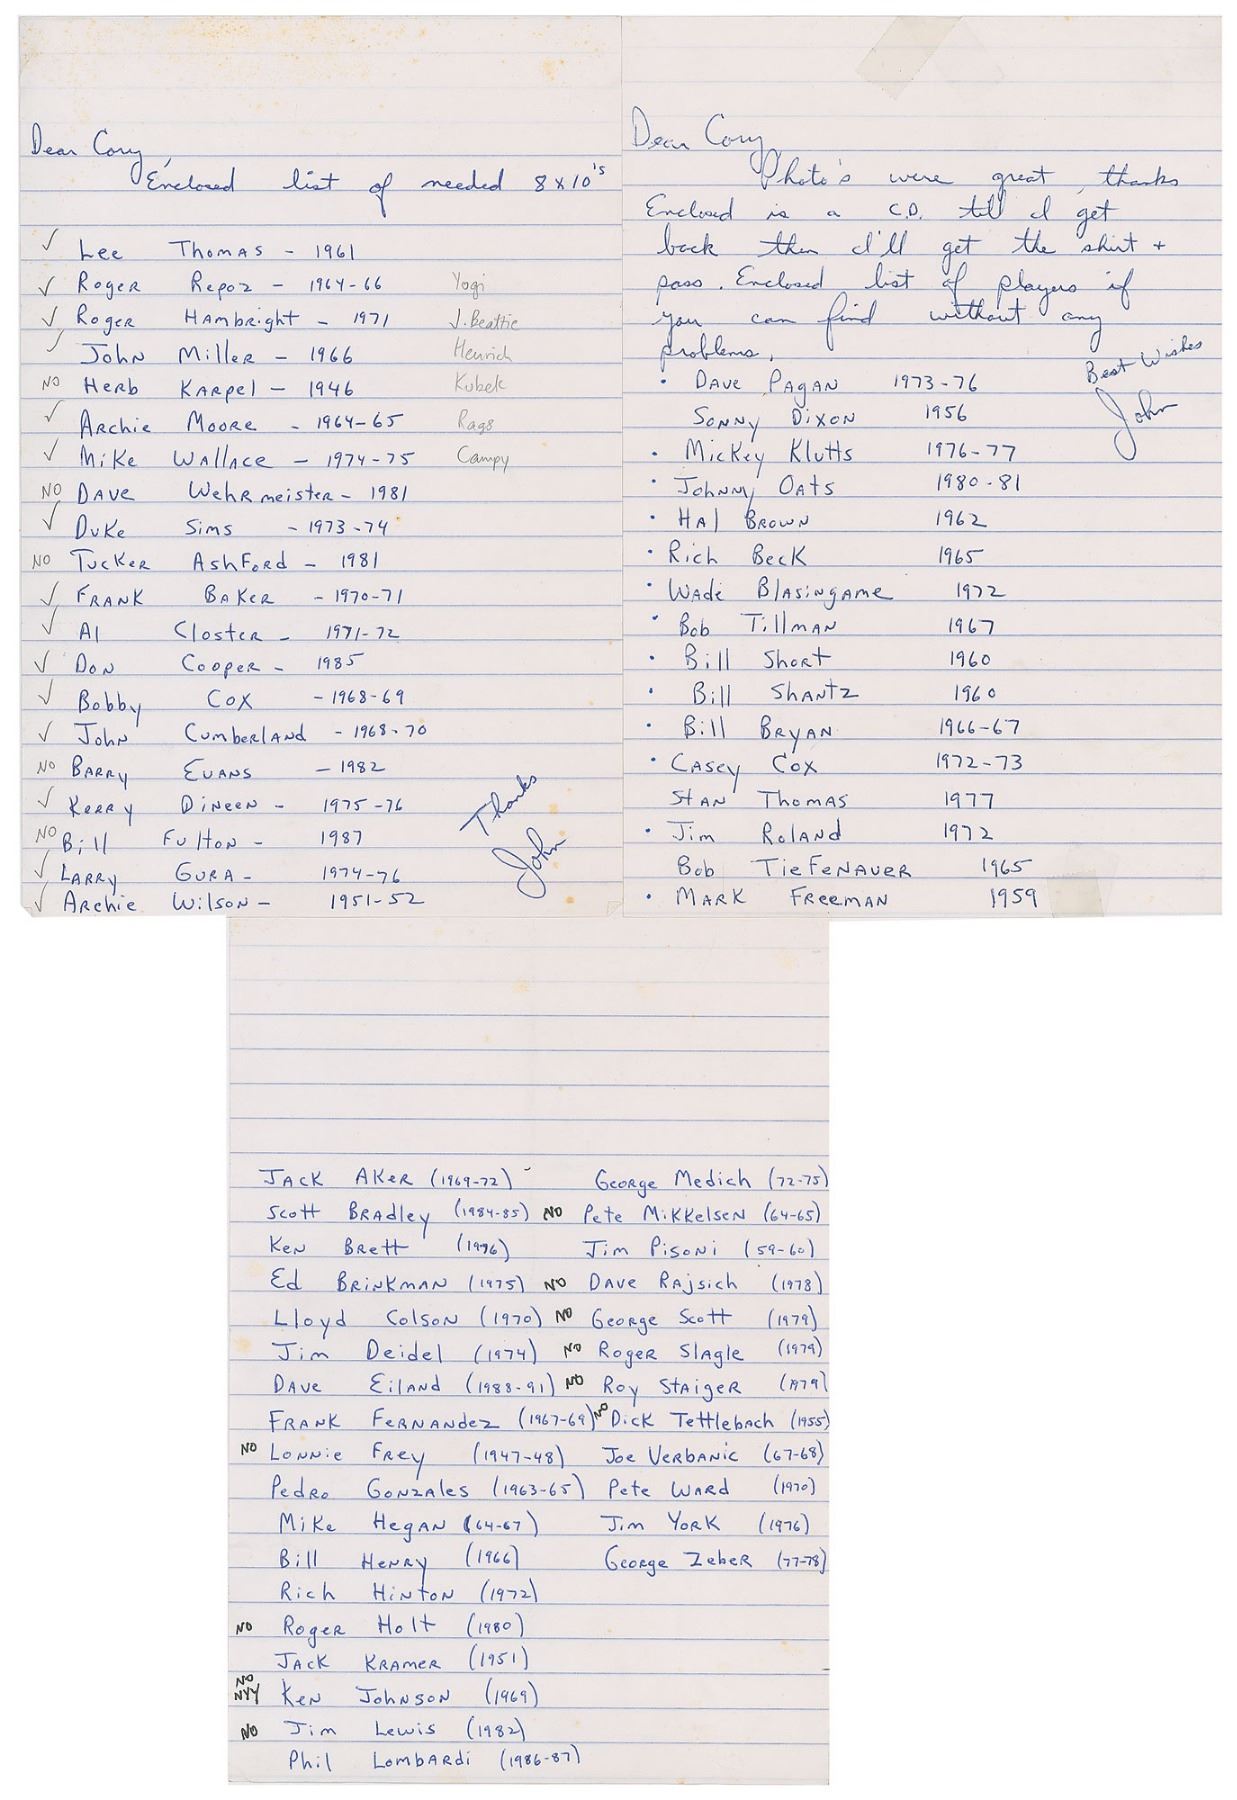 Dear Cory,
Enclosed list of needed 8x10's
✓ Lee Thomas - 1961
✓ Roger Repoz - 1964-66 Yogi
✓ Roger Hambright - 1971 J. Beattie
✓ John Miller - 1966 Henrich
NO Herb Karpel - 1946 Kubek
✓ Archie Moore - 1964-65 Rags
✓ Mike Wallace - 1974-75 Campy
NO Dave Wehrmeister - 1981
✓ Duke Sims - 1973-74
NO Tucker Ashford - 1981
✓ Frank Baker - 1970-71
✓ Al Closter - 1971-72
✓ Don Cooper - 1985
✓ Bobby Cox - 1968-69
✓ John Cumberland - 1968-70
NO Barry Evans - 1982
✓ Kerry Dineen - 1975-76
NO Bill Fulton - 1987
✓ Larry Gura - 1974-76
✓ Archie Wilson - 1951-52
Thanks
John
Dear Cory,
Photo's were great, thanks
Enclosed is a C.D. till I get
back then I'll get the shirt +
pass. Enclosed list of players if
you can find without any
problems.
Best Wishes
John
• Dave Pagan 1973-76
Sonny Dixon 1956
• Mickey Klutts 1976-77
• Johnny Oats 1980-81
• Hal Brown 1962
• Rich Beck 1965
• Wade Blasingame 1972
• Bob Tillman 1967
• Bill Short 1960
• Bill Shantz 1960
• Bill Bryan 1966-67
• Casey Cox 1972-73
Stan Thomas 1977
• Jim Roland 1972
Bob Tiefenauer 1965
• Mark Freeman 1959
Jack Aker (1969-72) George Medich (72-75)
Scott Bradley (1984-85) NO Pete Mikkelsen (64-65)
Ken Brett (1976) Jim Pisoni (59-60)
Ed Brinkman (1975) NO Dave Rajsich (1978)
Lloyd Colson (1970) NO George Scott (1979)
Jim Deidel (1974) NO Roger Slagle (1979)
Dave Eiland (1988-91) NO Roy Staiger (1979)
Frank Fernandez (1967-69) NO Dick Tettlebach (1955)
NO Lonnie Frey (1947-48) Joe Verbanic (67-68)
Pedro Gonzales (1963-65) Pete Ward (1970)
Mike Hegan (64-67) Jim York (1976)
Bill Henry (1966) George Zeber (77-78)
Rich Hinton (1972)
NO Roger Holt (1980)
Jack Kramer (1951)
NO NYY Ken Johnson (1969)
NO Jim Lewis (1982)
Phil Lombardi (1986-87)